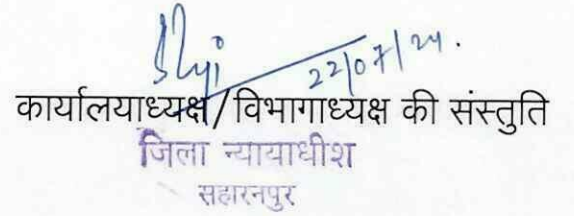 22/07/24.
कार्यालयाध्यक्ष/विभागाध्यक्ष की संस्तुति
जिला न्यायाधीश
सहारनपुर